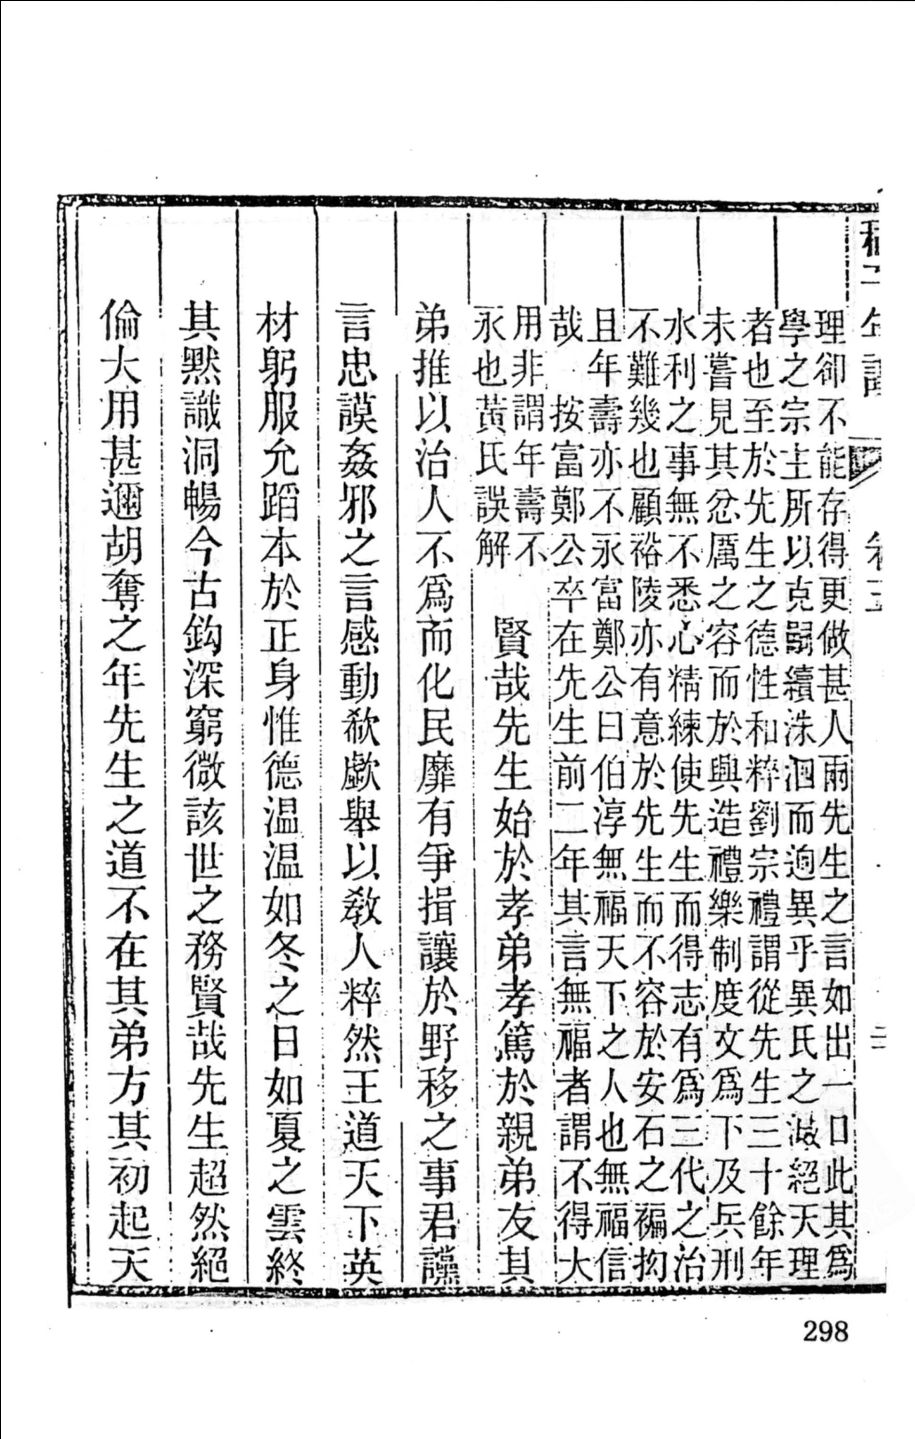 程子年譜 卷三 二
理卻不能存得更做甚人兩先生之言如出一口此其爲
學之宗主所以克嗣續洙泗而迥異乎異氏之滅絕天理
者也至於先生之德性和粹劉宗禮謂從先生三十餘年
未嘗見其忿厲之容而於興造禮樂制度文爲下及兵刑
水利之事無不悉心精練使先生而得志有爲三代之治
不難幾也顧裕陵亦有意於先生而不容於安石之褊拘
且年壽亦不永富鄭公曰伯淳無福天下之人也無福信
哉 按富鄭公卒在先生前二年其言無福者謂不得大
用非謂年壽不
永也黃氏誤解
賢哉先生始於孝弟孝篤於親弟友其
弟推以治人不爲而化民靡有爭揖讓於野移之事君讜
言忠謨姦邪之言感動欷歔舉以敎人粹然王道天下英
材躬服允蹈本於正身惟德温温如冬之日如夏之雲終
其默識洞暢今古鈎深窮微該世之務賢哉先生超然絕
倫大用甚邇胡奪之年先生之道不在其弟方其初起天
298